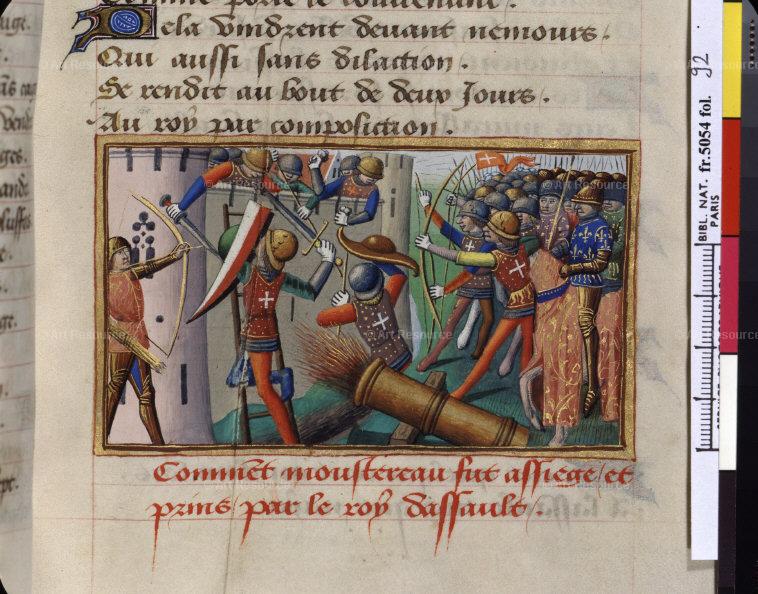 Comme porte le contenant.
Dela vindrent devant nemours.
Qui aussi sans dilaction.
Se rendit au bout de deux Jours.
Au roy par composiction.
© Art Resource
Comment moustereau fut assiege / et
prins / par le roy dassault /.
BIBL. NAT. fr. 5054 fol. 92
PARIS